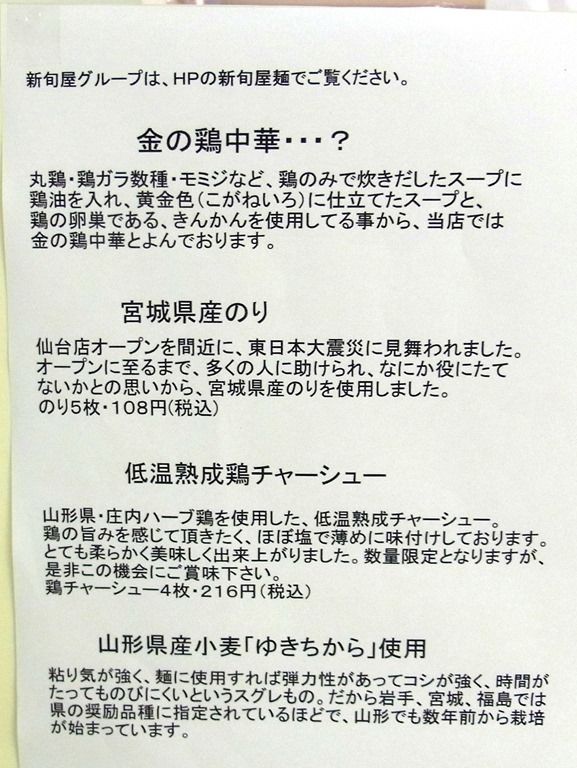 新旬屋グループは、HPの新旬屋麺でご覧ください。
金の鶏中華・・・？
丸鶏・鶏ガラ数種・モミジなど、鶏のみで炊きだしたスープに
鶏油を入れ、黄金色（こがねいろ）に仕立てたスープと、
鶏の卵巣である、きんかんを使用してる事から、当店では
金の鶏中華とよんでおります。
宮城県産のり
仙台店オープンを間近に、東日本大震災に見舞われました。
オープンに至るまで、多くの人に助けられ、なにか役にたて
ないかとの思いから、宮城県産のりを使用しました。
のり5枚・108円(税込)
低温熟成鶏チャーシュー
山形県・庄内ハーブ鶏を使用した、低温熟成チャーシュー。
鶏の旨みを感じて頂きたく、ほぼ塩で薄めに味付けしております。
とても柔らかく美味しく出来上がりました。数量限定となりますが、
是非この機会にご賞味下さい。
鶏チャーシュー4枚・216円（税込）
山形県産小麦「ゆきちから」使用
粘り気が強く、麺に使用すれば弾力性があってコシが強く、時間が
たってものびにくいというスグレもの。だから岩手、宮城、福島では
県の奨励品種に指定されているほどで、山形でも数年前から栽培
が始まっています。